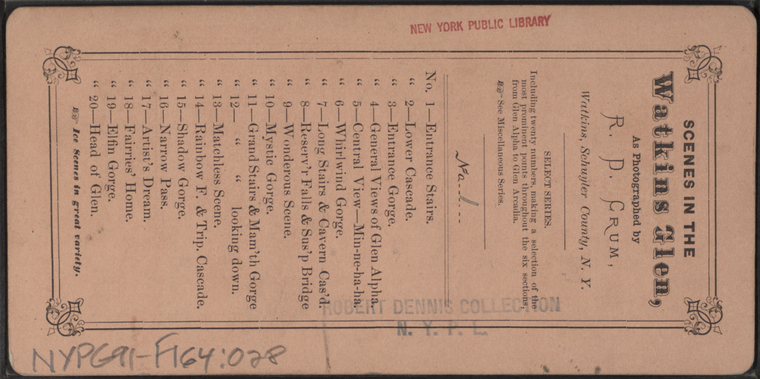 NEW YORK PUBLIC LIBRARY
SCENES IN THE
Watkins Glen,
As Photographed by
R. D. CRUM,
Watkins, Schuyler County, N. Y.
SELECT SERIES.
Including twenty numbers, making a selection of the
most prominent points throughout the six sections
from Glen Alpha to Glen Arcadia.
☞ See Miscellaneous Series.
No. 1
No. 1—Entrance Stairs.
“ 2—Lower Cascade.
“ 3—Entrance Gorge.
“ 4—General Views of Glen Alpha.
“ 5—Central View—Min-ne-ha-ha.
“ 6—Whirlwind Gorge.
“ 7—Long Stairs & Cavern Cas'd.
“ 8—Reserv'r Falls & Sus'p Bridge
“ 9—Wonderous Scene.
“ 10—Mystic Gorge.
“ 11—Grand Stairs & Mam'th Gorge
“ 12— “ “ looking down.
“ 13—Matchless Scene.
“ 14—Rainbow F. & Trip. Cascade.
“ 15—Shadow Gorge.
“ 16—Narrow Pass.
“ 17—Artist's Dream.
“ 18—Fairies' Home.
“ 19—Elfin Gorge.
“ 20—Head of Glen.
☞ Ice Scenes in great variety.
ROBERT DENNIS COLLECTION
N. Y. P. L.
NYPG91-F164:028